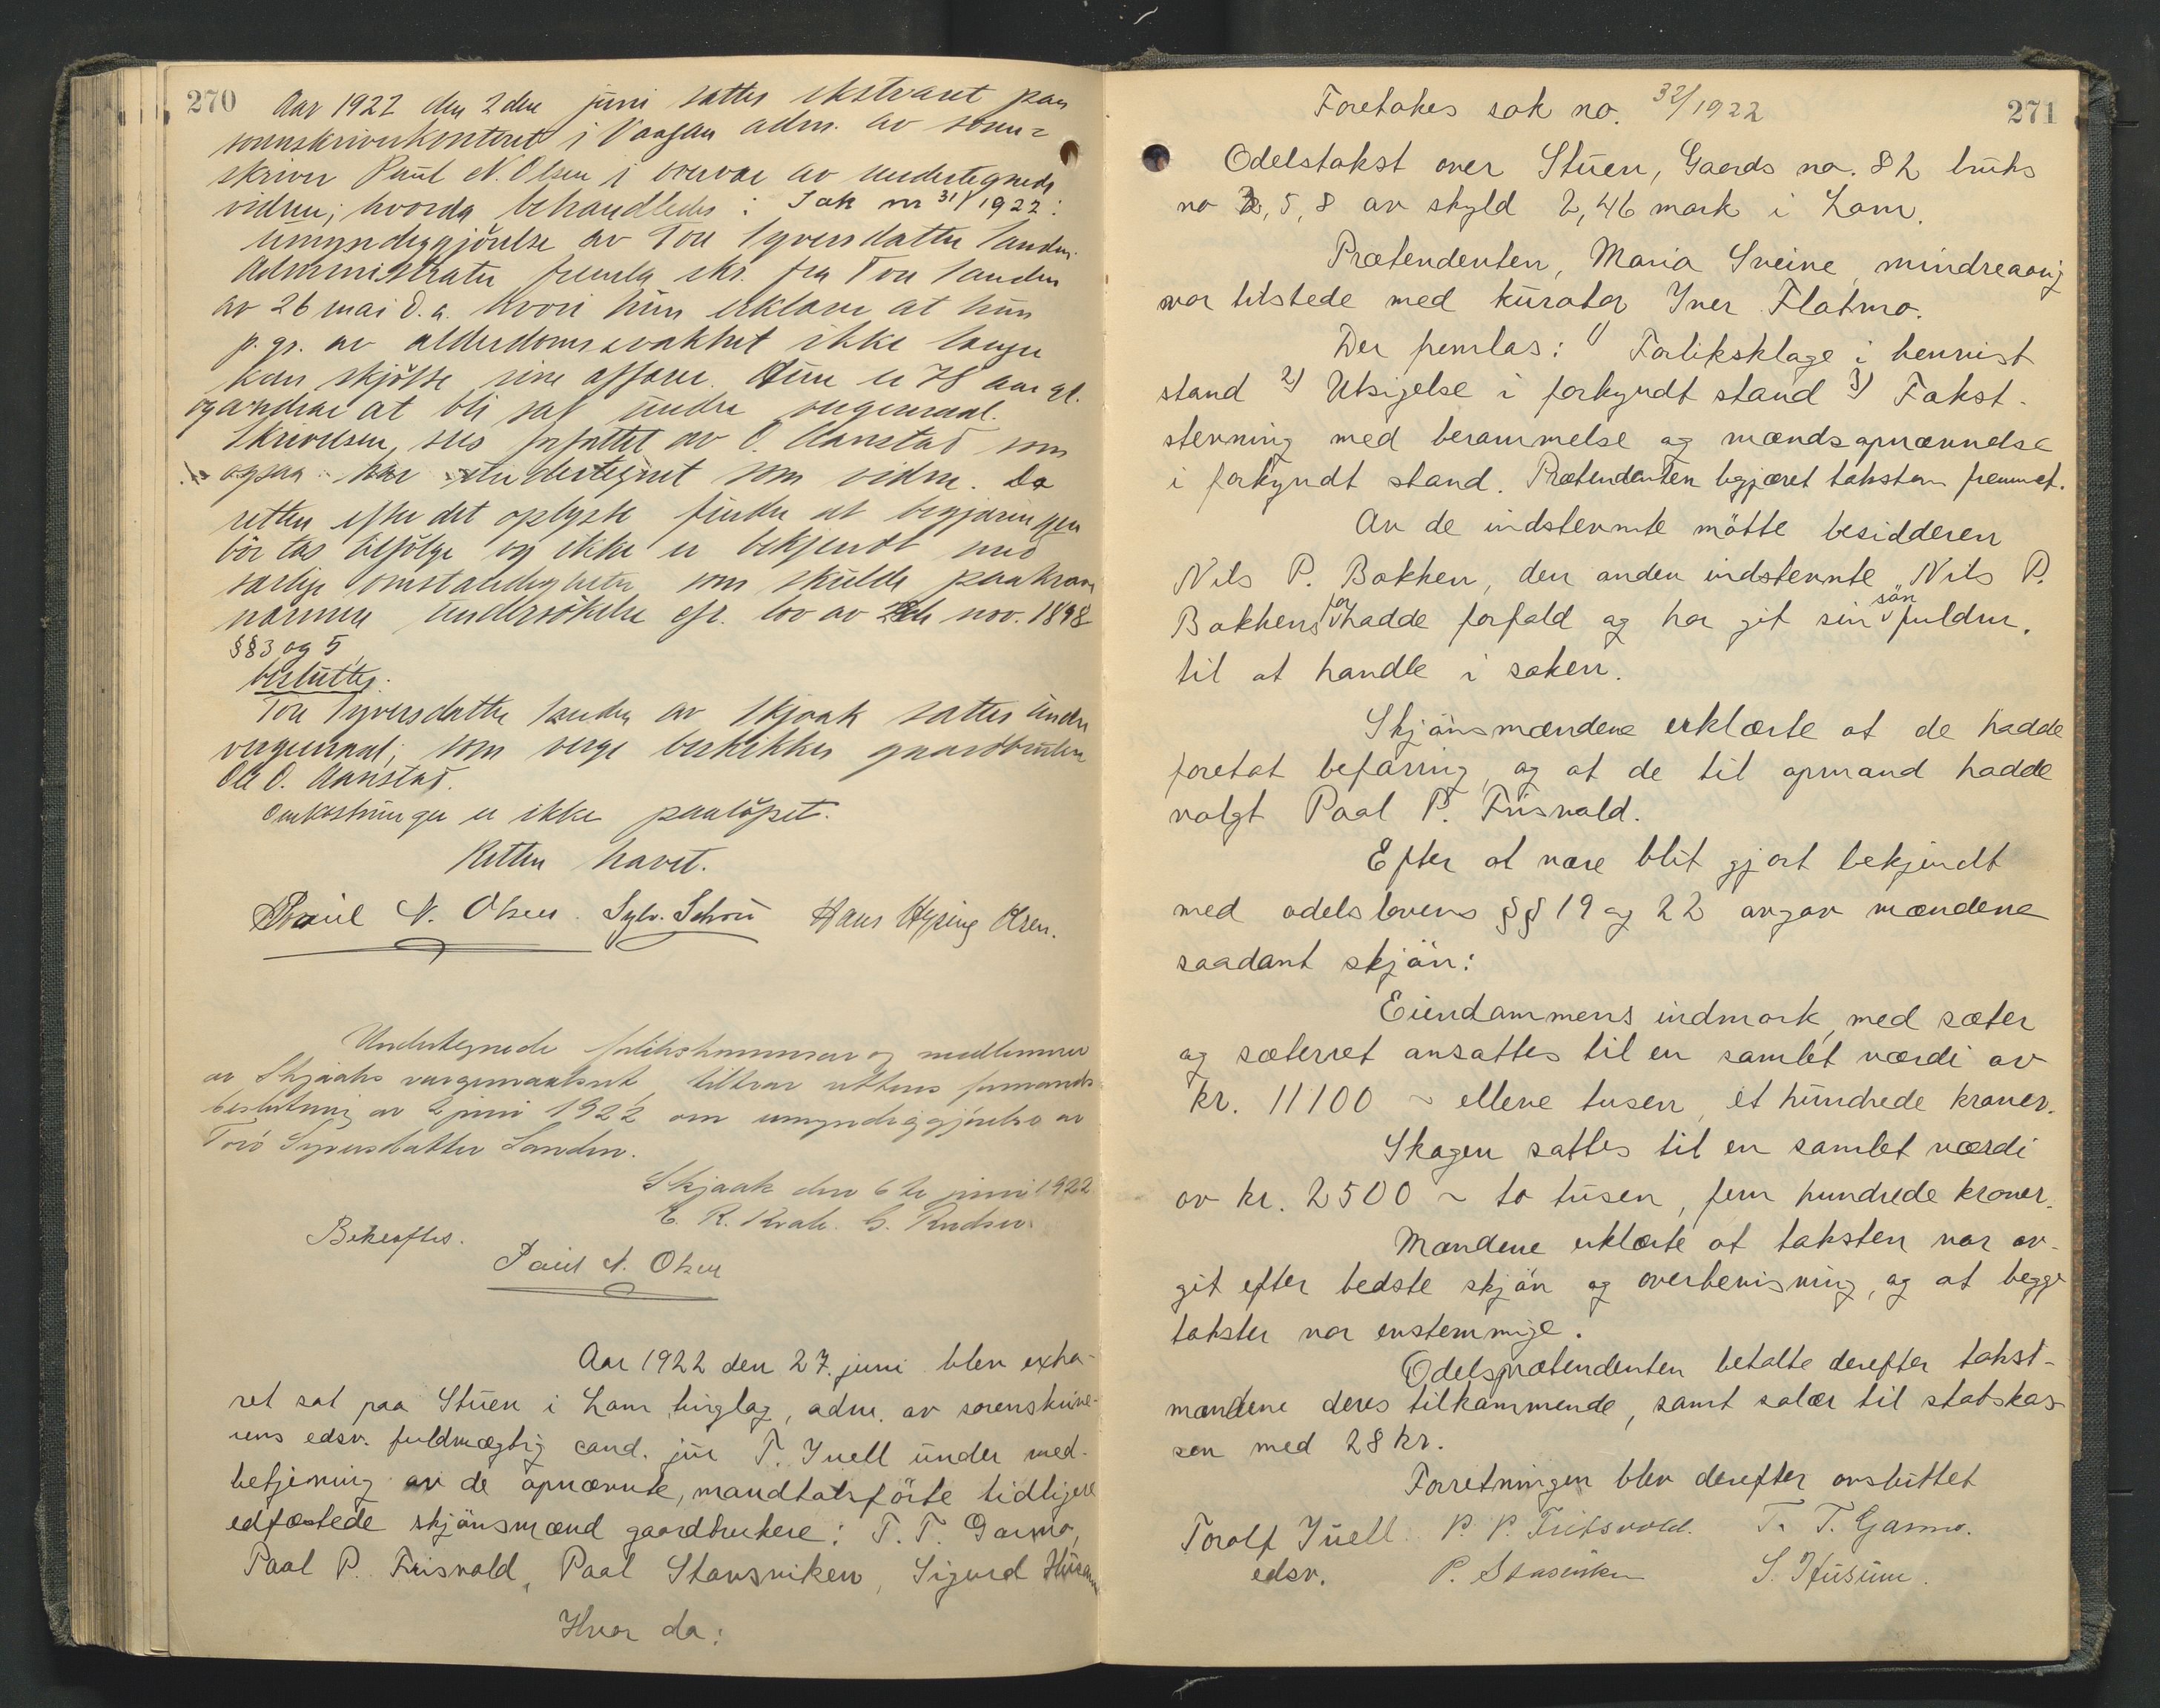 270
Aar 1922 den 2den juni sattes ekstraret paa
sorenskriverkontoret i Vaagaa adm. av soren=
skriver Paul N. Olsen i overvær av undertegnede
vidner; hvorda behandledes: Sak nr 31/1922:
umyndiggjörelse av Toro Syversdatter Sanden.
Administrator fremla skr. fra Toro Sanden
av 26 mai d.a. hvori hun erklærer at hun
p.gr. av alderdomssvakhet ikke længer
kan skjötte sine affærer. Hun er 78 aar gl.
og ønsker at bli sat under vergemaal.
Skrivelsen sees forfattet av O. Aanstad som
ogsaa har undertegnet som vidne. Da
retten efter det oplyste finder at begjæringen
bör tas tilfölge og ikke er bekjendt med
særlige omstændigheter som skulde paakræve
nærmere undersökelse cfr. lov av 28de nov. 1898
§§3 og 5,
besluttes:
Toro Syversdatter Sanden av Skjaak sættes under
vergemaal; som verge beskikkes gaardbruker
Ole O. Aanstad.
Omkostninger er ikke paalöpet.
Retten hævet.
Paul N. Olsen. Sylv. Schou Hans Hysing Olsen.
Undertegnede forlikskommisær og medlemmer
av Skjaaks vergemaalsret tiltrær rettens formands
beslutning av 2 juni 1922 om umyndiggjörelse av
Toro Syversdatter Sanden.
Skjaak den 6te juni 1922
E. R. Kvale. G. Rudsen.
Bekræftes.
Paul N. Olsen
Aar 1922 den 27. juni blev extra-
ret sat paa Stuen i Lom tinglag, adm. av sorenskrive-
rens edsv. fuldmægtig cand. jur T. Juell under med-
betjening av de opnævnte, mandtalsförte tidligere
edfæstede skjönsmænd gaardbrukere: T. T. Garmo,
Paal P. Frisvold, Paal Stavsviken, Sigurd Husum
Hvor da:
271
Foretokes sak no. 32/1922
Odelstakst over Stuen, Gaards no. 82 bruks
no 2, 5, 8 av skyld 2,46 mark i Lom.
Prætendenten, Maria Sveine, mindreaarig
var tilstede med kurator Iver Flatmo.
Der fremlas: 1) Forliksklage i henvist
stand 2) Utsigelse i forkyndt stand 3) Takst-
stevning med berammelse og mændsopnævnelse
i forkyndt stand. Prætendenten begjæret taksten fremmet.
Av de indstevnte mötte besidderen
Nils P. Bakken, den anden indstevnte, Nils P.
Bakkens far hadde forfald og har git sin sön fuldm.
til at handle i saken.
Skjönsmændene erklærte at de hadde
foretat befaring, og at de til opmand hadde
valgt Paal P. Frisvold.
Efter at være blit gjort bekjendt
med odelslovens §§ 19 og 22 avgav mændene
saadant skjön:
Eiendommens indmark, med sæter
og sæterret ansattes til en samlet værdi av
kr. 11100 ~ elleve tusen, et hundrede kroner.
Skogen sattes til en samlet værdi
av kr. 2500 ~ to tusen, fem hundrede kroner.
Mændene erklærte at taksten var av-
git efter bedste skjön og overbevisning, og at begge
takster var enstemmige.
Odelsprætendenten betalte derefter takst-
mændene deres tilkommende, samt salær til statskas-
sen med 28 kr.
Forretningen blev derefter avsluttet
Toralf Juell. P. P. Fritsvold. T. T. Garmo.
edsv. P. Stavsviken S. Husum.